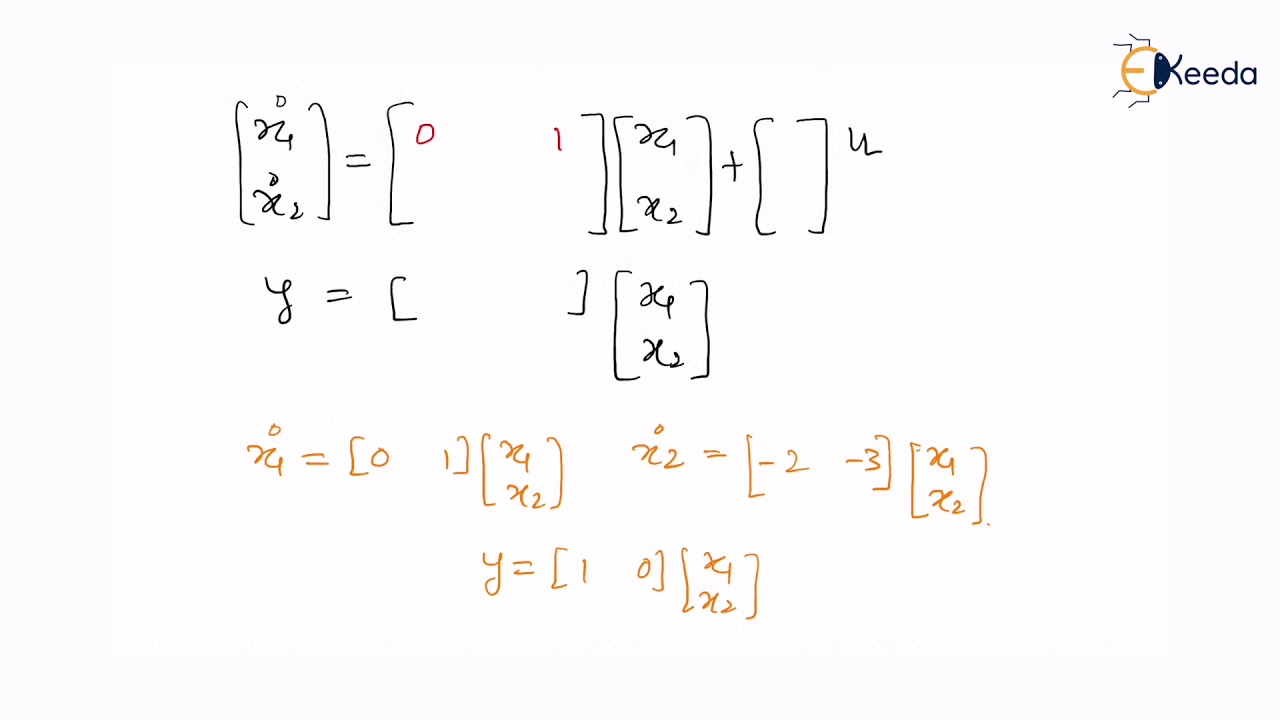 EKeeda
[ẋ1 ẋ2] = [0 1] [x1 x2] + [ ] u
y = [ ] [x1 x2]
ẋ1 = [0 1] [x1 x2] ẋ2 = [-2 -3] [x1 x2]
y = [1 0] [x1 x2]